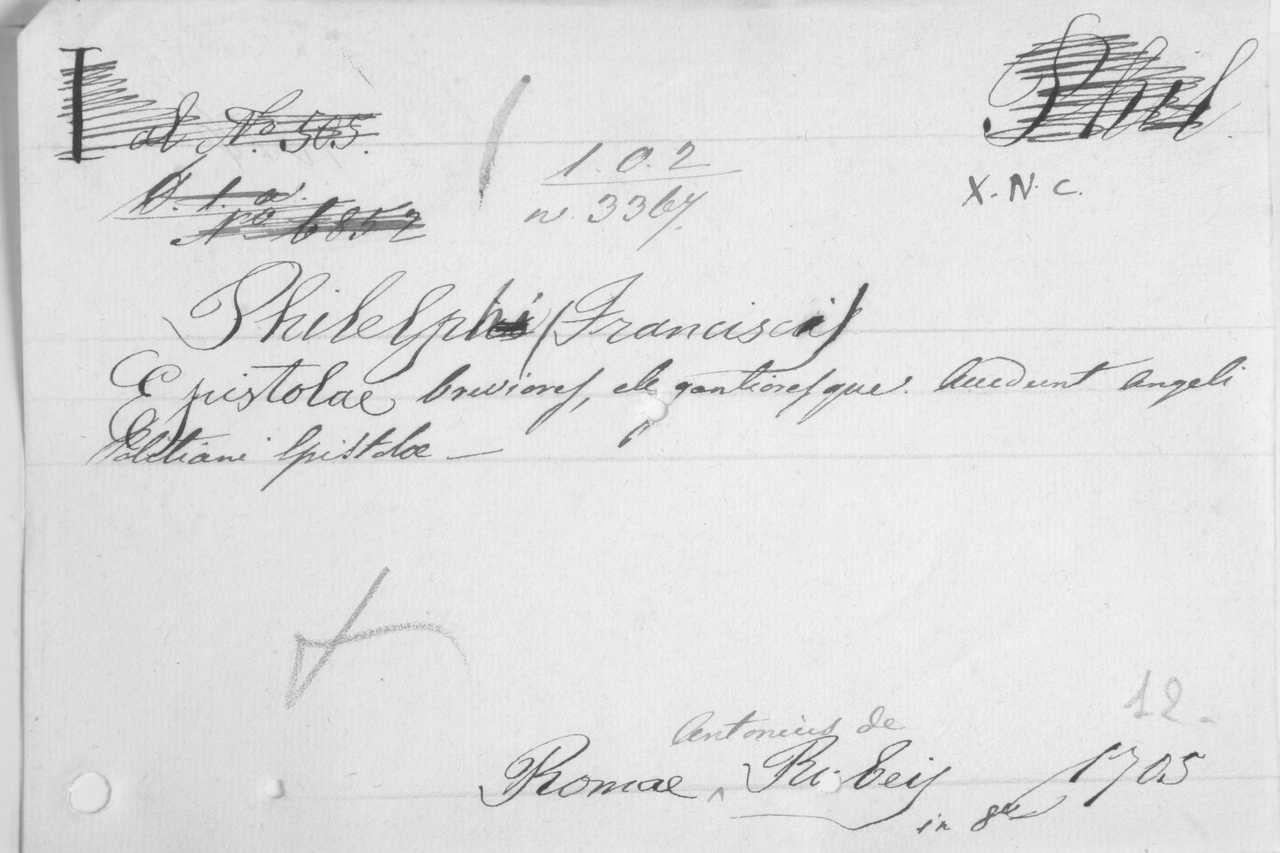 at Nº. 505.
Phil
1.0.2
n. 3367.
X. N. C.
Nº 6852
Philelphi (Francisci)
Epistolae breviores, elegantioresque. Accedunt Angeli
Politiani Epistolæ —
12.
Antonius de
Romae, Rubeis 1705
in 8º